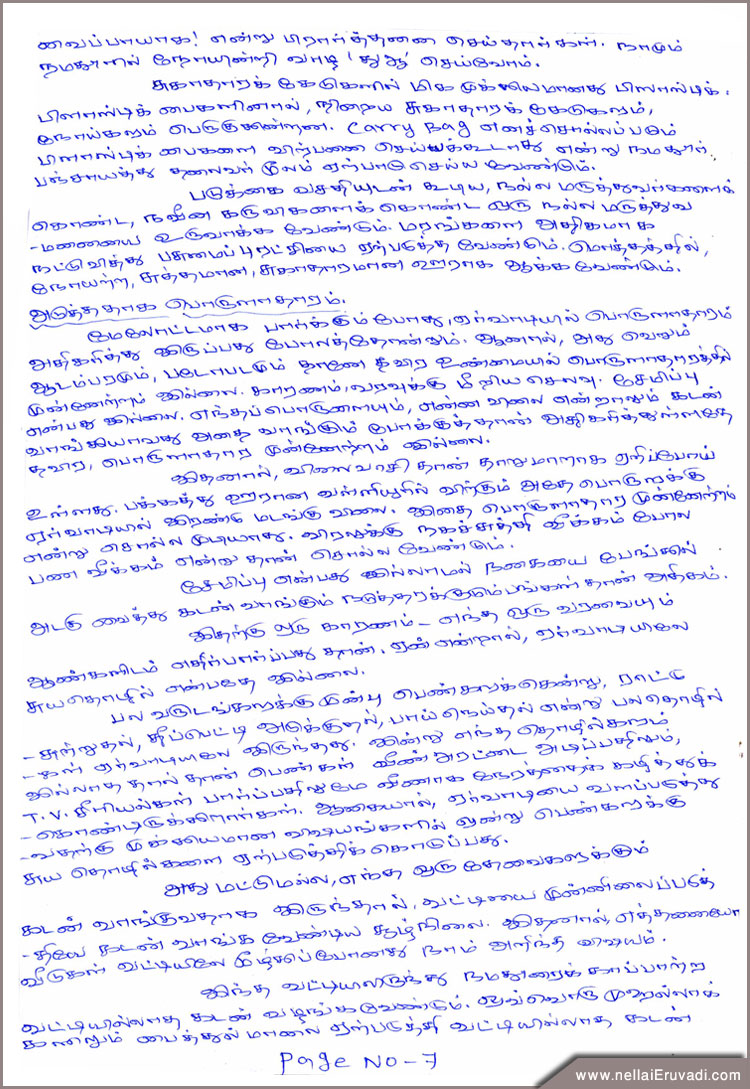 வைப்பாயாக! என்று பிரார்த்தனை செய்தார்கள். நாமும்
நமதூரில் நோயின்றி வாழ துஆ செய்வோம்.
சுகாதாரக் கேடுகளில் மிக முக்கியமானது பிளாஸ்டிக்.
பிளாஸ்டிக் பைகளினால், நிறைய சுகாதாரக் கேடுகளும்,
நோய்களும் பெருகுகின்றன. Carry Bag எனச்சொல்லப்படும்
பிளாஸ்டிக் பைகளை விற்பனை செய்யக்கூடாது என்று நமதூர்
பஞ்சாயத்து தலைவர் மூலம் ஏற்பாடு செய்ய வேண்டும்.
படுக்கை வசதியுடன் கூடிய, நல்ல மருத்துவர்களைக்
கொண்ட, நவீன கருவிகளைக் கொண்ட ஒரு நல்ல மருத்துவ
-மனையை உருவாக்க வேண்டும். மரங்களை அதிகமாக
நட்டுவித்து பசுமைப்புரட்சியை ஏற்படுத்த வேண்டும். மொத்தத்தில்,
நோயற்ற, சுத்தமான, சுகாதாரமான ஊராக ஆக்க வேண்டும்.
அடுத்ததாக பொருளாதாரம்.
மேலோட்டமாக பார்க்கும்போது, ஏர்வாடியில் பொருளாதாரம்
அதிகரித்து இருப்பது போலத்தோன்றும். ஆனால், அது வெறும்
ஆடம்பரமும், படோபடமும் தானே தவிர உண்மையில் பொருளாதாரத்தில்
முன்னேற்றம் இல்லை. காரணம், வரவுக்கு மீறிய செலவு. சேமிப்பு
என்பது இல்லை. எந்தப்பொருளையும், என்ன விலை என்றாலும் கடன்
வாங்கியாவது அதை வாங்கும் போக்குத்தான் அதிகரித்துள்ளதே
தவிர, பொருளாதார முன்னேற்றம் இல்லை.
இதனால், விலைவாசி தான் தாறுமாறாக ஏறிப்போய்
உள்ளது. பக்கத்து ஊரான வள்ளியூரில் விற்கும் அதே பொருளுக்கு
ஏர்வாடியில் இரண்டு மடங்கு விலை. இதை பொருளாதார முன்னேற்றம்
என்று சொல்ல முடியாது. விரலுக்கு நகச்சுத்தி வீக்கம் போல
பண வீக்கம் என்று தான் சொல்ல வேண்டும்.
சேமிப்பு என்பது இல்லாமல் நகையை பேங்கில்
அடகு வைத்து கடன் வாங்கும் நடுத்தரக்குடும்பங்கள் தான் அதிகம்.
இதற்கு ஒரு காரணம் - எந்த ஒரு வரவையும்
ஆண்களிடம் எதிர்பார்ப்பது தான். ஏன் என்றால், ஏர்வாடியிலே
சுயதொழில் என்பதே இல்லை.
பல வருடங்களுக்கு முன்பு பெண்களுக்கென்று, ராட்டு
-சுற்றுதல், தீப்பெட்டி அடுக்குதல், பாய் நெய்தல் என்று பலதொழில்
-கள் ஏர்வாடியிலே இருந்தது. இன்று எந்த தொழில்களும்
இல்லாத தால் தான் பெண்கள் வீண் அரட்டை அடிப்பதிலும்,
T.V. சீரியல்கள் பார்ப்பதிலுமே வீணாக நேரத்தைக் கழித்துக்
-கொண்டிருக்கிறார்கள். ஆகையால், ஏர்வாடியை வளப்படுத்து
-வதற்கு முக்கியமான விஷயங்களில் ஒன்று பெண்களுக்கு
சுய தொழில்களை ஏற்படுத்திக் கொடுப்பது.
அது மட்டுமல்ல, எந்த ஒரு தேவைகளுக்கும்
கடன் வாங்குவதாக இருந்தால், வட்டியை முன்னிலைப்படுத்
-தியே கடன் வாங்க வேண்டிய சூழ்நிலை. இதனால், எத்தனையோ
வீடுகள் வட்டியிலே மூழ்கிப்போனது நாம் அறிந்த விஷயம்.
இந்த வட்டியிலிருந்து நமதூரைக் காப்பாற்ற
வட்டியில்லாத கடன் வழங்க வேண்டும். ஒவ்வொரு முஹல்லாக்
களிலும் பைத்துல்மாலை ஏற்படுத்தி வட்டியில்லாத கடன்
Page No - 7
www.nellaiEruvadi.com